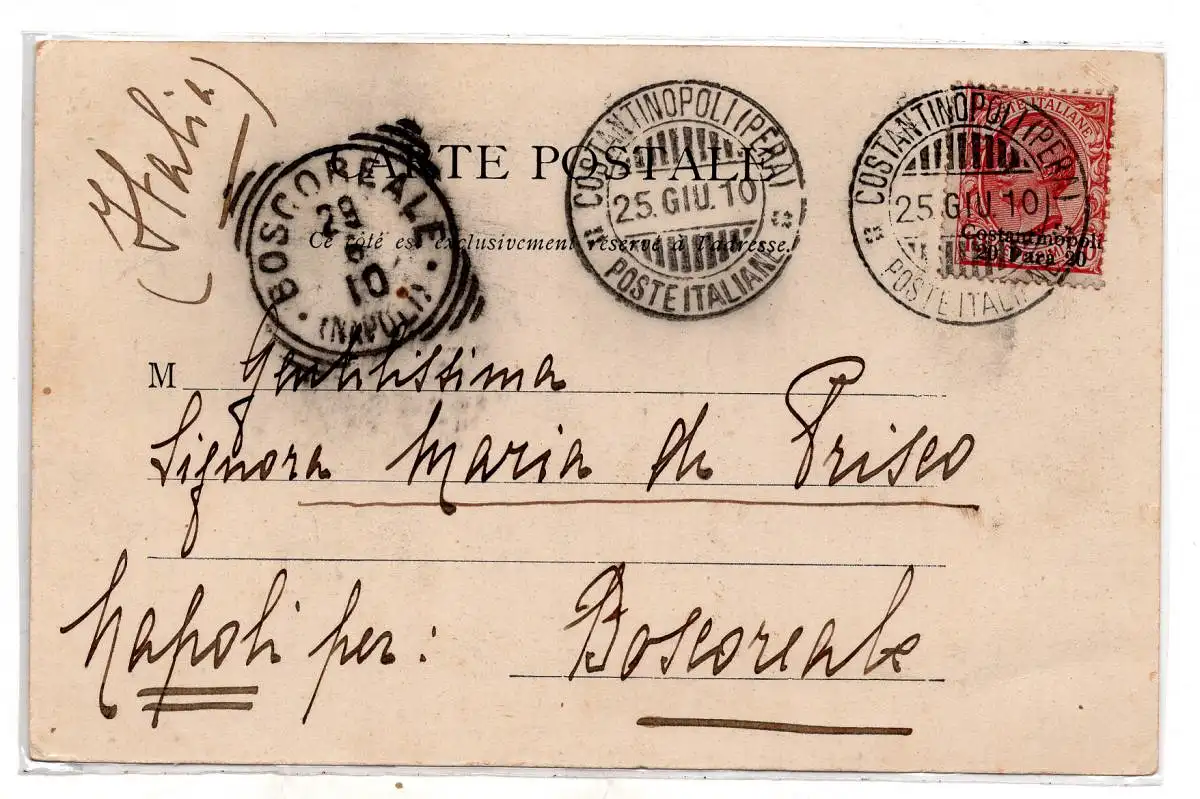 (Italia)
CARTE POSTALE
Ce côté est exclusivement réservé à l'adresse.
BOSCOREALE
(NAPOLI)
10
COSTANTINOPOLI (PERA)
25. GIU. 10
POSTE ITALIANE
COSTANTINOPOLI (PERA)
25. GIU. 10
POSTE ITALI
POSTE ITALIANE
Costantinopoli
20 Para 20
M Gentilissima
Signora Maria di Prisco
Napoli per: Boscoreale